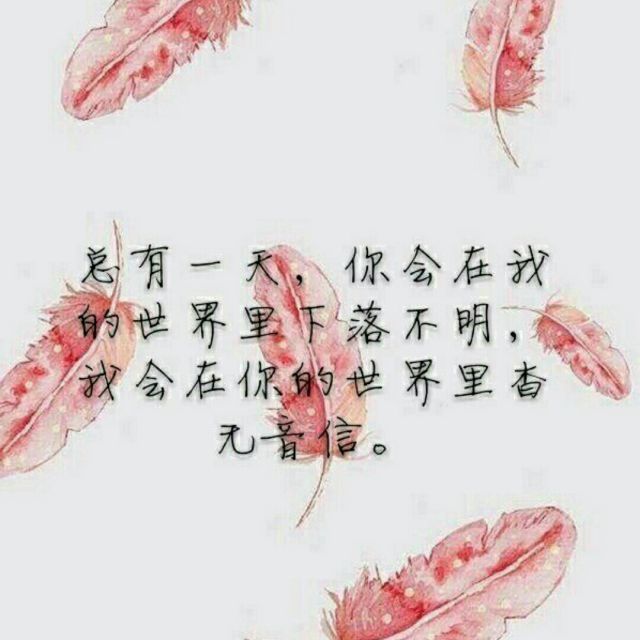 总有一天，你会在我
的世界里下落不明，
我会在你的世界里杳
无音信。